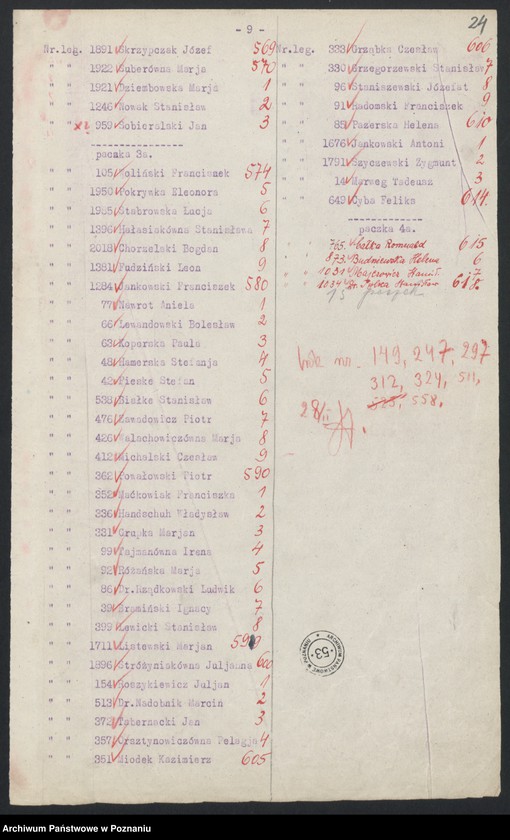 - 9 -
24
Nr.leg. 1891 Skrzypczak Józef 569
" " 1922 Suberówna Marja 570
" " 1921 Dziembowska Marja 1
" " 1246 Nowak Stanisław 2
" " 959 Sobieralski Jan 3
paczka 3a.
" " 105 Woliński Franciszek 574
" " 1950 Pokrywka Eleonora 5
" " 1985 Stabrowska Łucja 6
" " 1396 Hałasiakówna Stanisława 7
" " 2018 Chorzelski Bogdan 8
" " 1381 Fudziński Leon 9
" " 1284 Jankowski Franciszek 580
" " 77 Nawrot Aniela 1
" " 66 Lewandowski Bolesław 2
" " 63 Koperska Paula 3
" " 48 Hamerska Stefanja 4
" " 42 Pieske Stefan 5
" " 538 Bielke Stanisław 6
" " 476 Zawadowicz Piotr 7
" " 426 Małachowiczówna Marja 8
" " 412 Michalski Czesław 9
" " 362 Kowałowski Piotr 590
" " 352 Maćkowiak Franciszka 1
" " 336 Handschuh Władysław 2
" " 331 Czapka Marjan 3
" " 99 Fajmanówna Irena 4
" " 92 Różańska Marja 5
" " 86 Dr.Rządkowski Ludwik 6
" " 39 Bromiński Ignacy 7
" " 399 Lewicki Stanisław 8
" " 1711 Listewski Marjan 599
" " 1896 Stróżyniakówna Juljanna 600
" " 154 Koszykiewicz Juljan 1
" " 513 Dr.Nadobnik Marcin 2
" " 372 Tabernacki Jan 3
" " 357 Orsztynowiczówna Pelagja 4
" " 351 Miodek Kazimierz 605
Nr.leg. 333 Grząbka Czesław 606
" " 330 Grzegorzewski Stanisław 7
" " 96 Staniszewski Józefat 8
" " 91 Radomski Franciszek 9
" " 85 Pazerska Helena 610
" " 1676 Jankowski Antoni 1
" " 1791 Szyczewski Zygmunt 2
" " 14 Marweg Tadeusz 3
" " 649 Cyba Feliks 614
paczka 4a.
765. Całka Romuald 615
873. Budniewska Helena 6
1031 Majerowicz Hanił. 7
1034 Dr. Stanisław 618
nr. 149, 247, 297
312, 324, 511,
525, 558.
28/II
ARCHIWUM PAŃSTWOWE W POZNANIU
53
Archiwum Państwowe w Poznaniu
szukajwarchiwach.gov.pl